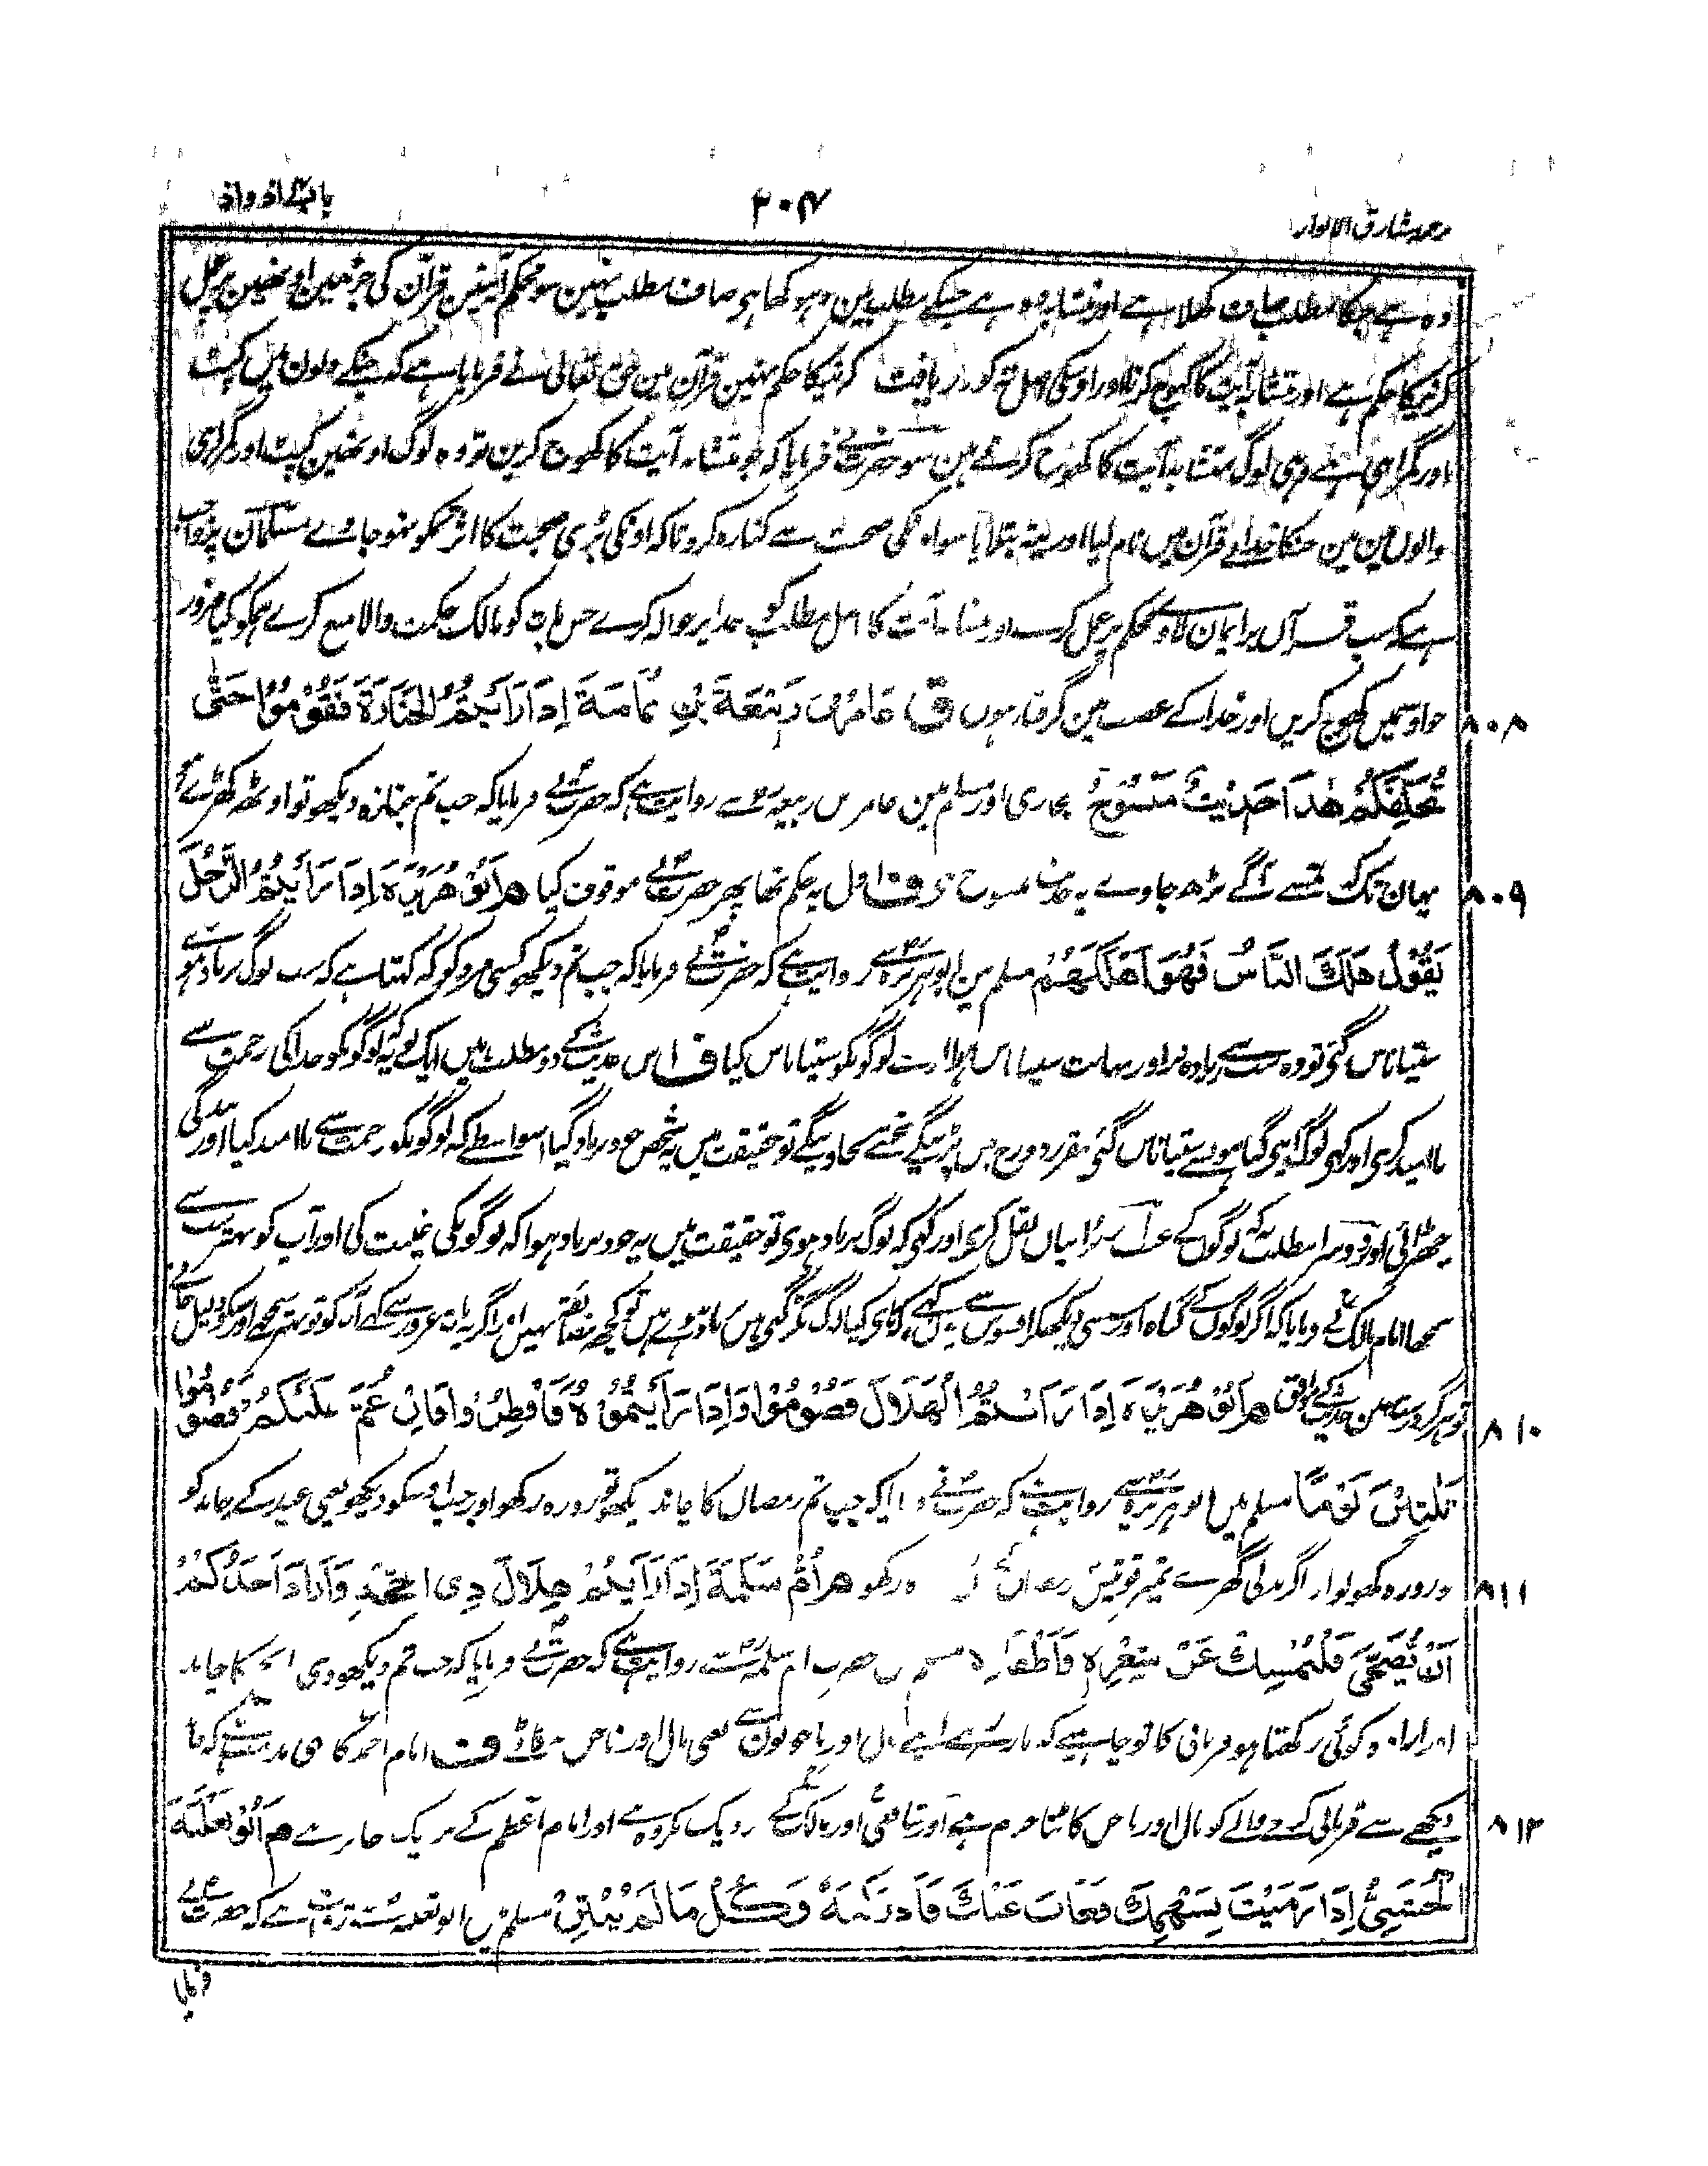 ترجمہ مشارق الانوار
۳۰۴
باب اذ و اذا
وہ ہے جسکا مطلب صاف کھلا ہے اور متشابہ وہ ہے جسکے مطلب مین دہوکھا ہو صاف مطلب نہین سو محکم آیتین قرآن کی جڑ ہین اونھین پر عمل
کرنیکا حکم ہے اور متشابہ آیت کا کھوج کرنا اور اوسکی اصل کو دریافت کرنیکا حکم نہین قرآن مین حق تعالی نے فرمایا ہے کہ جنکے دلون مین کپٹ
اور گمراہی ہے وہی لوگ متشابہ آیت کا کھوج کرتے ہین سو حضرت نے فرمایا کہ جو متشابہ آیت کا کھوج کرین تو وہ لوگ اونھین کپٹ اور گمراہی
والوں مین ہین جنکا خدا نے قرآن میں نام لیا اور پتہ بتلایا سو اونکی صحبت سے کنارہ کرو تاکہ اونکی بُری صحبت کا اثر تمکو نہو جاوے مسلمان پر واجب
ہے کہ سب قرآن پر ایمان لاوے محکم پر عمل کرے اور متشابہ آیت کا اصل مطلب خدا پر حوالہ کرے جس بات کو مالک حکمت والا منع کرے ہمکو کیا ضرور
جو اوسمیں کھوج کریں اور خدا کے غضب مین گرفتار ہوں ق عَامِرُ بْنُ رَبِيْعَةَ إِذَا رَأَيْتُمُ الْجَنَازَةَ فَقُوْمُوْا حَتّٰى
۸۰۸
تُخَلِّفَكُمْ هٰذَا حَدِيْثٌ مَنْسُوْخٌ بخاری اور مسلم مین عامر بن ربیعہ سے روایت ہے کہ حضرت نے فرمایا کہ جب تم جنازہ دیکھو تو اوٹھ کھڑے ہو
یہان تک کہ تمسے آگے بڑھ جاوے یہ حدیث منسوخ ہی ف اول یہ حکم تھا پھر حضرت نے موقوف کیا م أَبُوْ هُرَيْرَةَ إِذَا رَأَيْتُمُ الرَّجُلَ
۸۰۹
يَقُوْلُ هَلَكَ النَّاسُ فَهُوَ أَهْلَكُهُمْ مسلم مین ابو ہریرہ سے روایت ہے کہ حضرت نے فرمایا کہ جب تم دیکھو کسی مرد کو کہ کہتا ہے کہ سب لوگ برباد ہو
ستیاناس گئی تو وہ سب سے زیادہ تر لوگونکو ستیاناس کیا ف اس حدیث کے دو مطلب ہیں ایک تو یہ کہ لوگونکو خدا کی رحمت سے
ناامید کری اور کہی لوگ ستیاناس گئی مقرر دوزخ میں پڑینگے بخشے نجاوینگے تو حقیقت میں یہ شخص خود برباد گیا اسواسطے کہ لوگونکو رحمت سے ناامید کیا اور
چھڑائی اور دوسرا مطلب یہ کہ لوگوں کے عیب برائیاں نقل کری اور کہی کہ لوگ برباد ہوئی تو حقیقت میں یہ خود برباد ہوا کہ لوگونکی غیبت کی اور آپ کو بہتر سب سے
سمجھا امام مالک نے فرمایا کہ اگر لوگوں کے گناہ اور سستی دیکھکر افسوس سے یہ کہے تو کچھ مضائقہ نہیں اور اگر یہ بات غرور سے کہے آپکو تو بہتر سمجھے اور سبکو ذلیل جانے
تو ہرگز درست نہین م أَبُوْ هُرَيْرَةَ إِذَا رَأَيْتُمُ الْهِلَالَ فَصُوْمُوْا وَإِذَا رَأَيْتُمُوْهُ فَأَفْطِرُوْا فَإِنْ غُمَّ عَلَيْكُمْ فَصُوْمُوْا
۸۱۰
ثَلٰثِيْنَ يَوْمًا مسلم میں ابو ہریرہ سے روایت ہے کہ حضرت نے فرمایا کہ جب تم رمضان کا چاند دیکھو تو روزہ رکھو اور جب اوسکو دیکھو یعنی عید کے چاند کو
تو روزہ کھولو اور اگر بدلی گھرے تمپر تو تیس روزہ رکھو م أُمُّ سَلَمَةَ إِذَا رَأَيْتُمْ هِلَالَ ذِى الْحِجَّةِ وَأَرَادَ أَحَدُكُمْ
۸۱۱
أَنْ يُّضَحِّيَ فَلْيُمْسِكْ عَنْ شَعْرِهٖ وَأَظْفَارِهٖ مسلم میں حضرت ام سلمہ سے روایت ہے کہ حضرت نے فرمایا کہ جب تم دیکھو ذی الحجہ کا چاند
اور ارادہ کوئی رکھتا ہو قربانی کا تو چاہیے کہ باز رہے اپنے بال اور ناخونوں سے یعنی بال اور ناخن نہ کاٹے ف امام احمد کا یہی مذہب ہے کہ چاند
دیکھے سے قربانی کرنے والے کو بال اور ناخن کا کاٹنا حرام ہے اور شافعی اور مالک کے نزدیک مکروہ ہے اور امام اعظم کے نزدیک جائز ہے م أَبُوْ ثَعْلَبَةَ
۸۱۲
الْخُشَنِيُّ إِذَا رَمَيْتَ بِسَهْمِكَ فَغَابَ عَنْكَ فَأَدْرَكْتَهٗ فَكُلْ مَا لَمْ يُنْتِنْ مسلم میں ابو ثعلبہ سے روایت ہے کہ حضرت نے
فرمایا